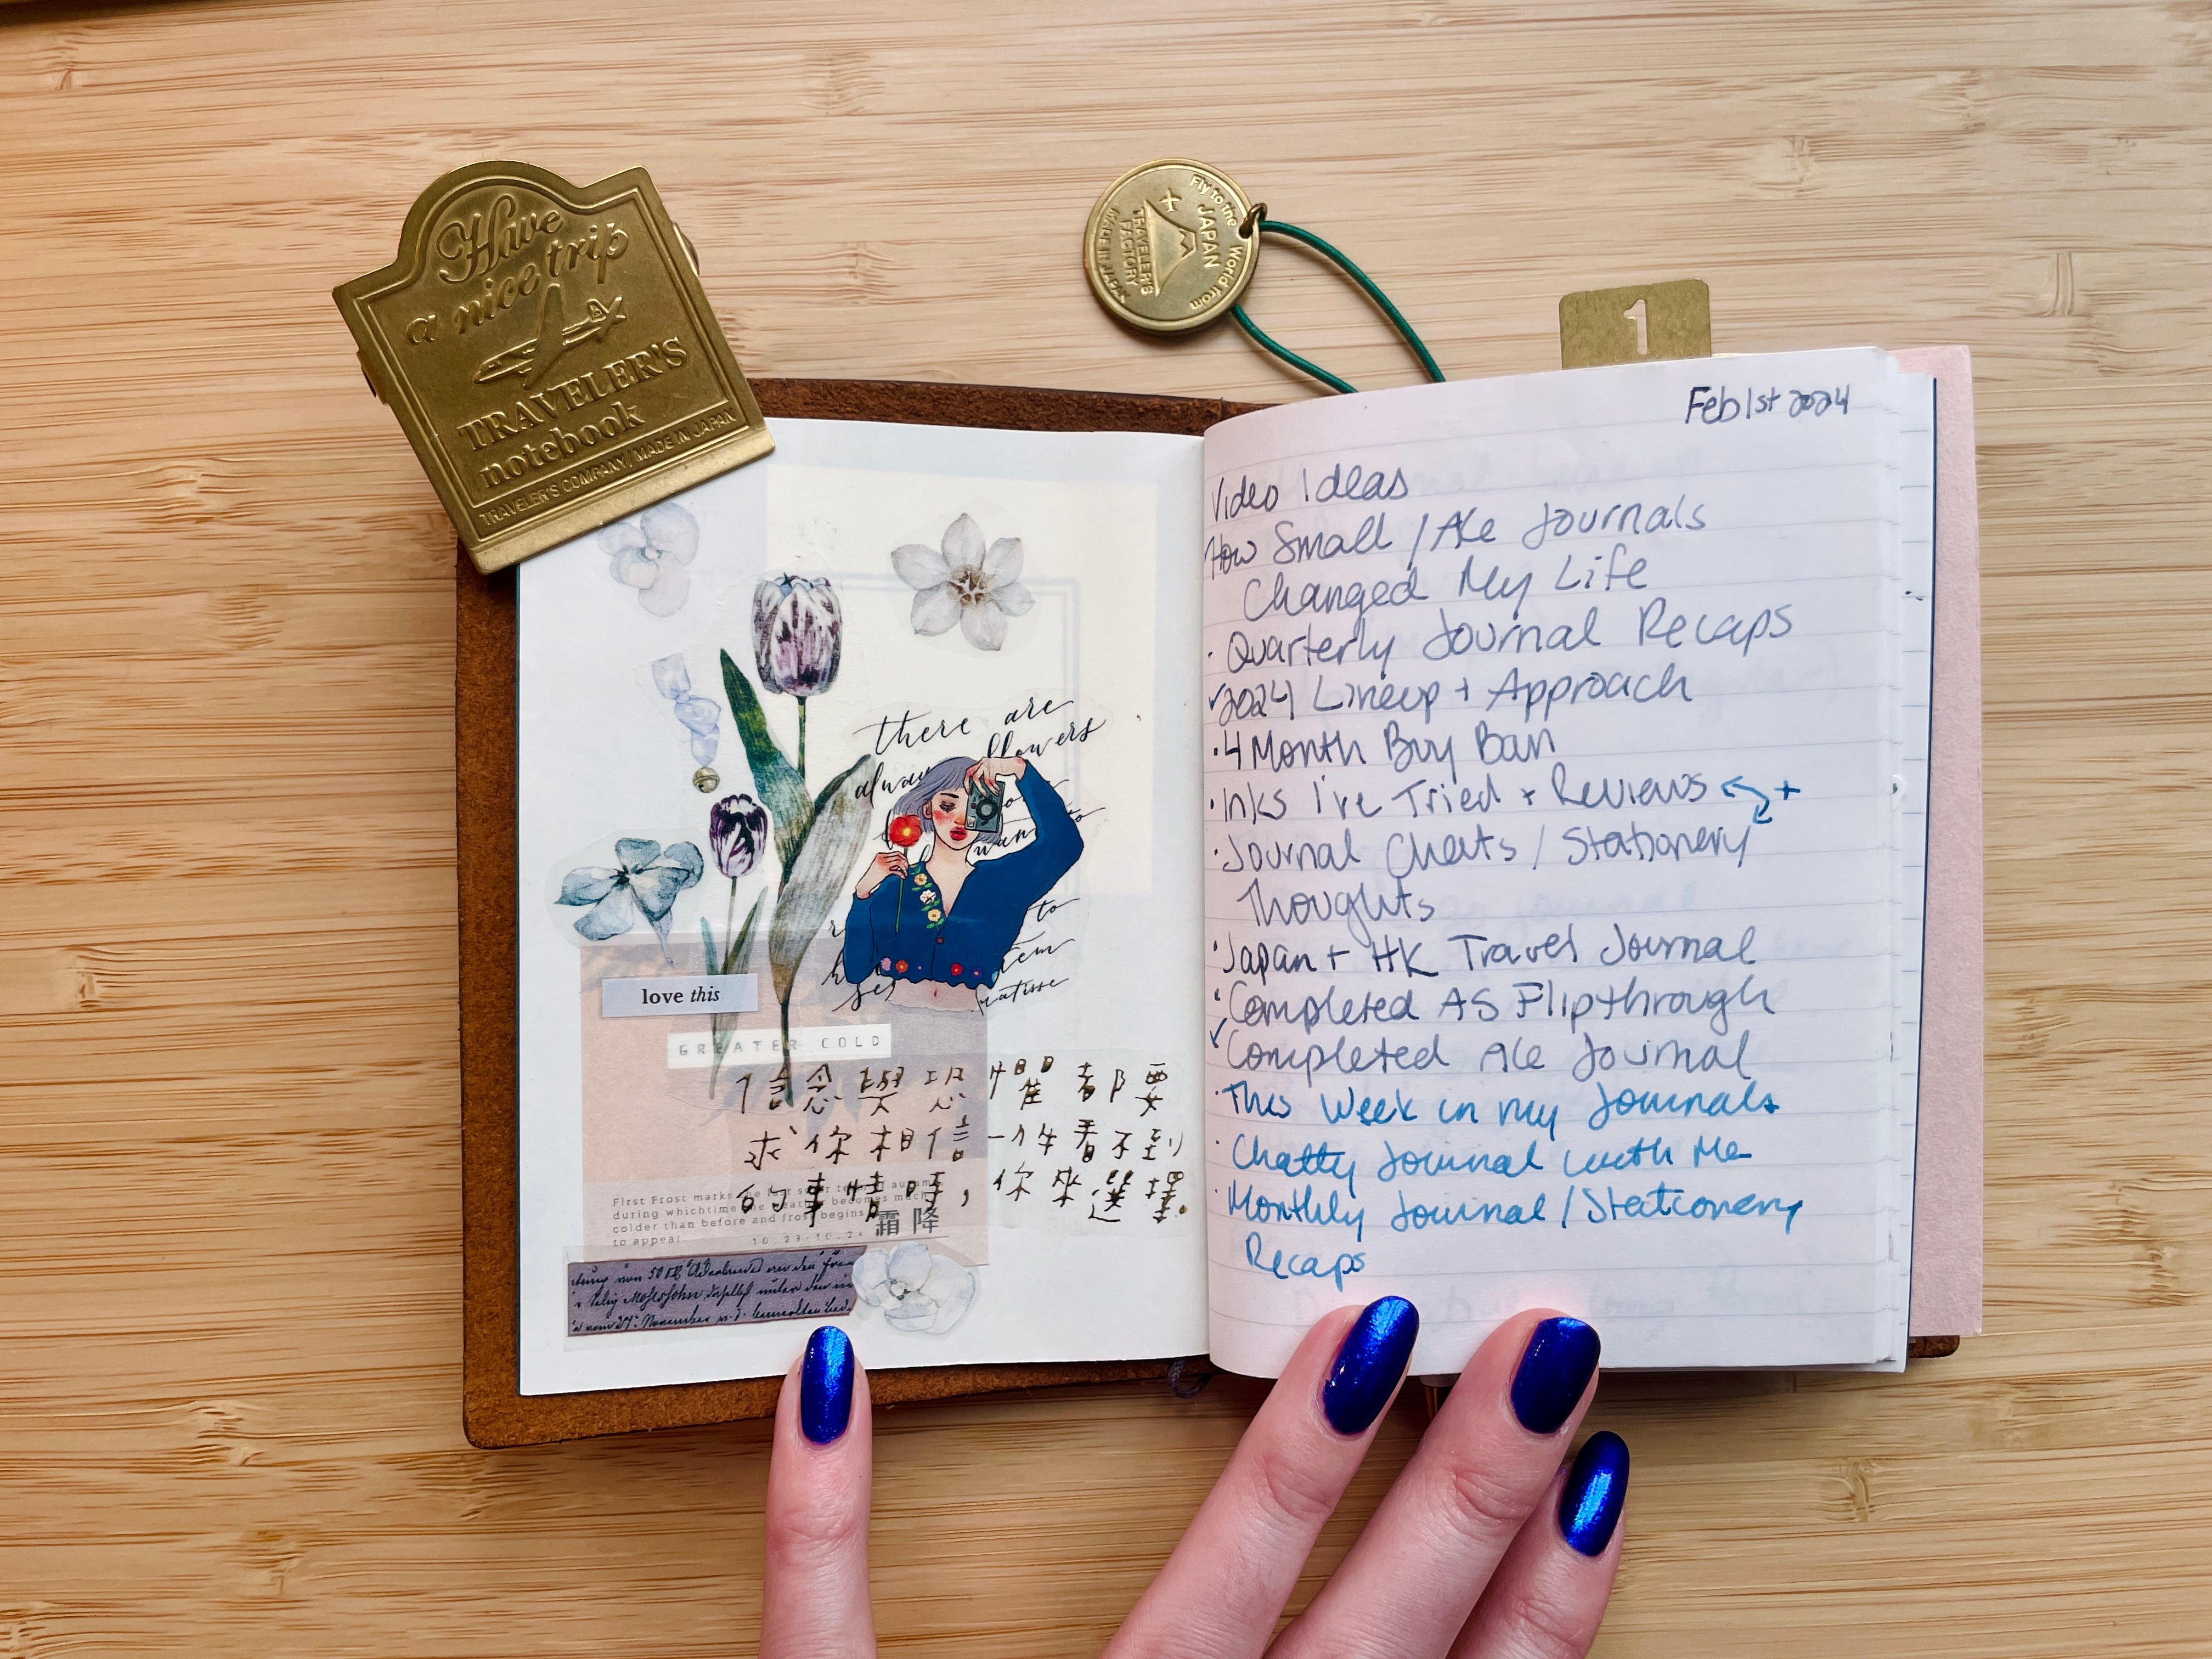 Have
a nice trip
TRAVELER'S
notebook
TRAVELER'S COMPANY/MADE IN JAPAN
Fly to the World from
JAPAN
TRAVELER'S
FACTORY
MADE IN JAPAN
1
there are
always flowers
to
want to
to
them
matisse
love this
GREATER COLD
信念與恐懼都要
求你相信一件看不到
的事情時，你來選擇。
First Frost marks the last solar term of autumn
during whichtime the weather becomes much
colder than before and frost begins
to appear.
10.23-10.24
霜降
Feb 1st 2024
Video Ideas
How Small / A6 Journals
Changed My Life
· Quarterly Journal Recaps
✓ 2024 Lineup + Approach
· 4 Month Buy Ban
· Inks I've Tried + Reviews +
· Journal Chats / Stationery
Thoughts
· Japan + HK Travel Journal
· Completed A5 Flipthrough
✓ Completed A6 Journal
· This Week in my Journals
· Chatty Journal with Me
· Monthly Journal / Stationery
Recaps